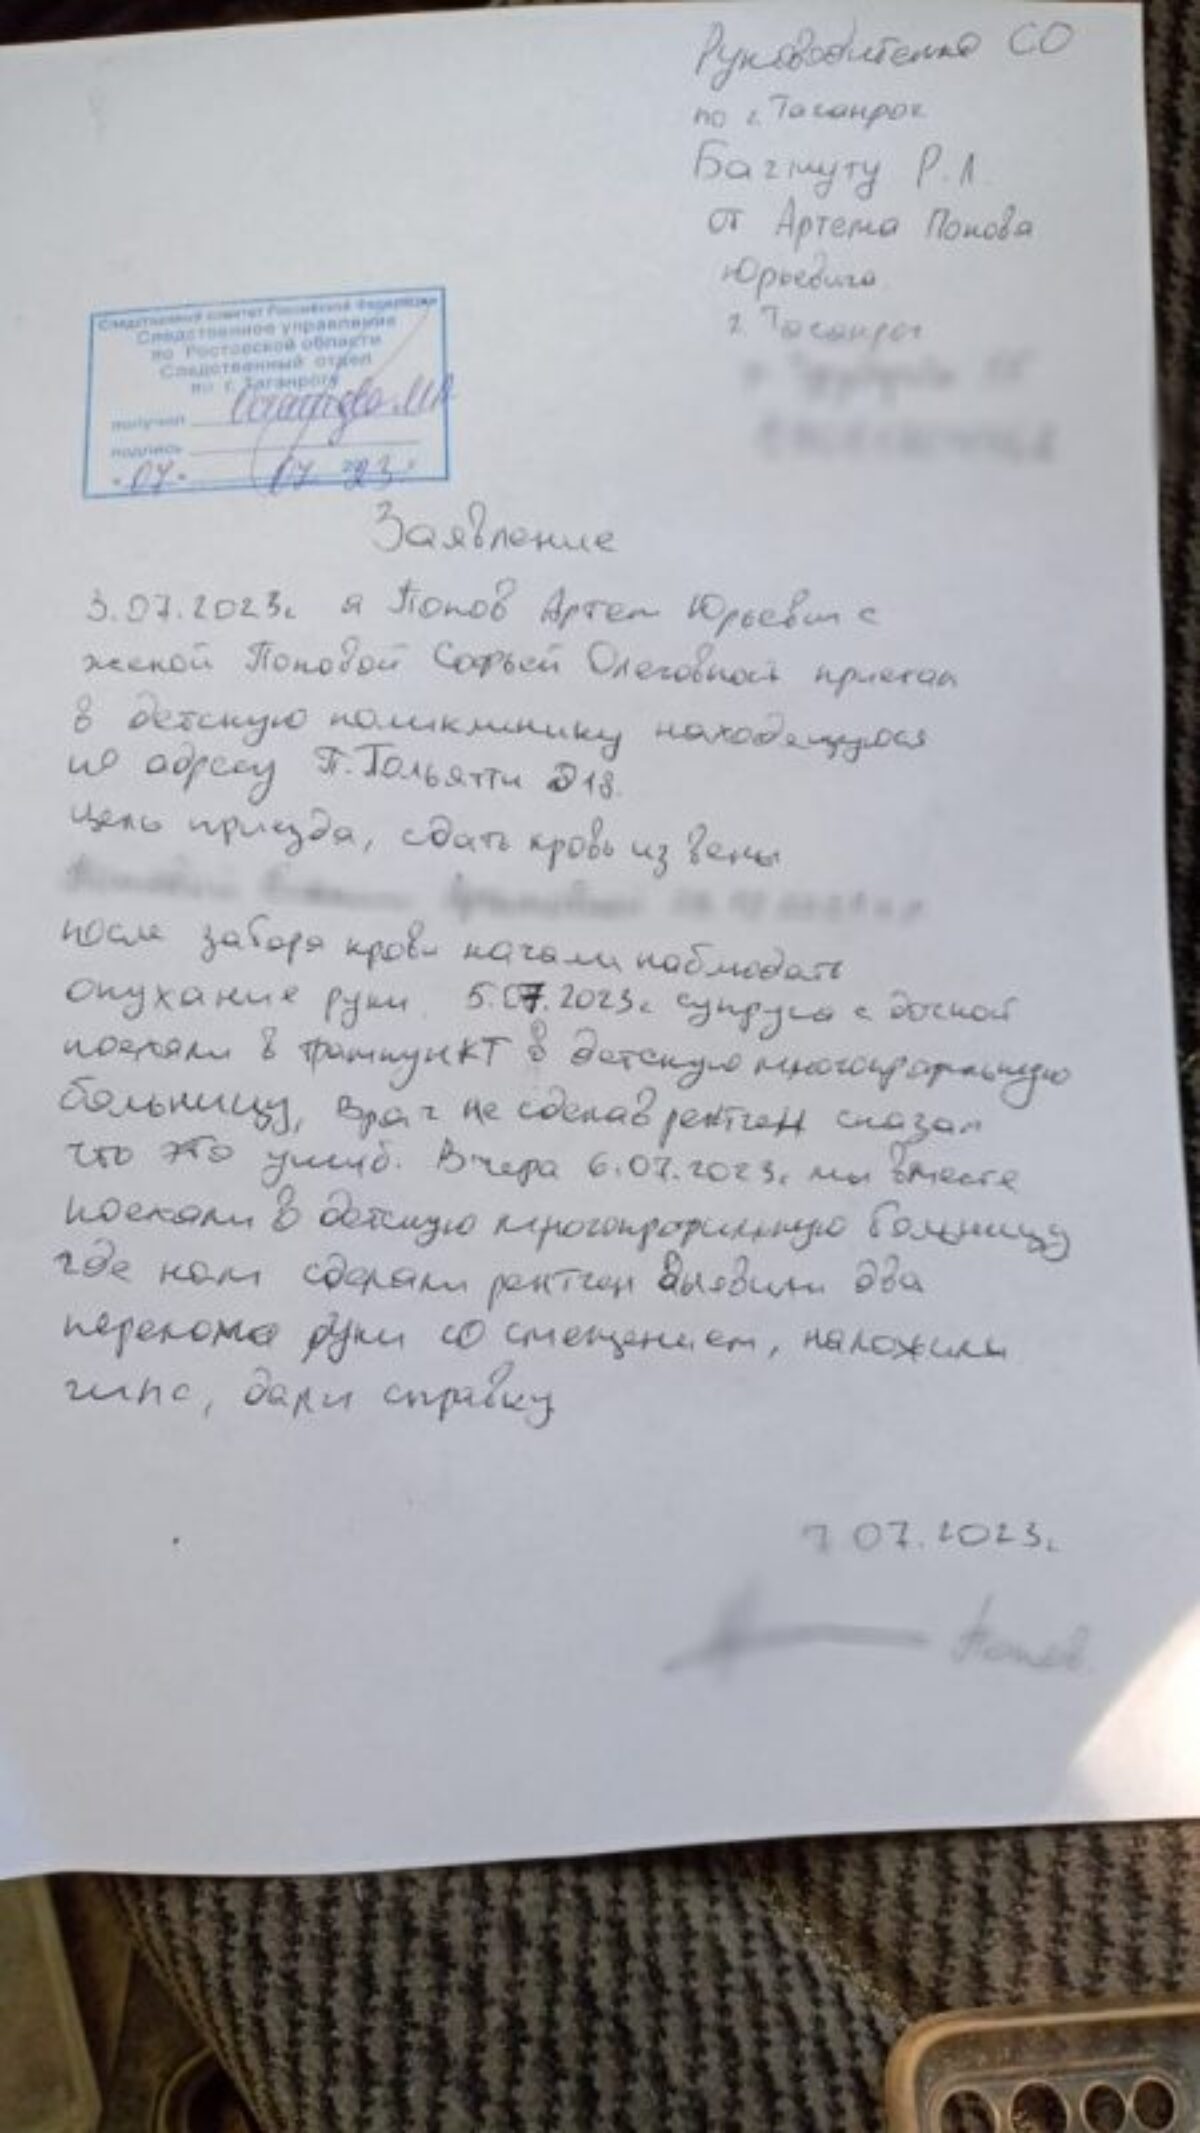 Руководителю СО
по г. Таганрог
Багмуту Р.Л.
от Артема Попова
Юрьевича
г. Таганрог
Следственный комитет Российской Федерации
Следственное управление
по Ростовской области
Следственный отдел
по г. Таганрогу
получил
подпись
"07" 07 23
Заявление
3.07.2023г я Попов Артем Юрьевич с
женой Поповой Софьей Олеговной приехал
в детскую поликлинику находящуюся
по адресу П.Тольятти д18.
цель приезда, сдать кровь из вены
после забора крови начали наблюдать
опухание руки. 5.07.2023г супруга с дочкой
поехали в травмпункт в детскую многопрофильную
больницу, врач не сделав рентген сказал
что это ушиб. Вчера 6.07.2023г мы вместе
поехали в детскую многопрофильную больницу
где нам сделали рентген выявили два
перелома руки со смещением, наложили
гипс, дали справку
7 07.2023г
Попов